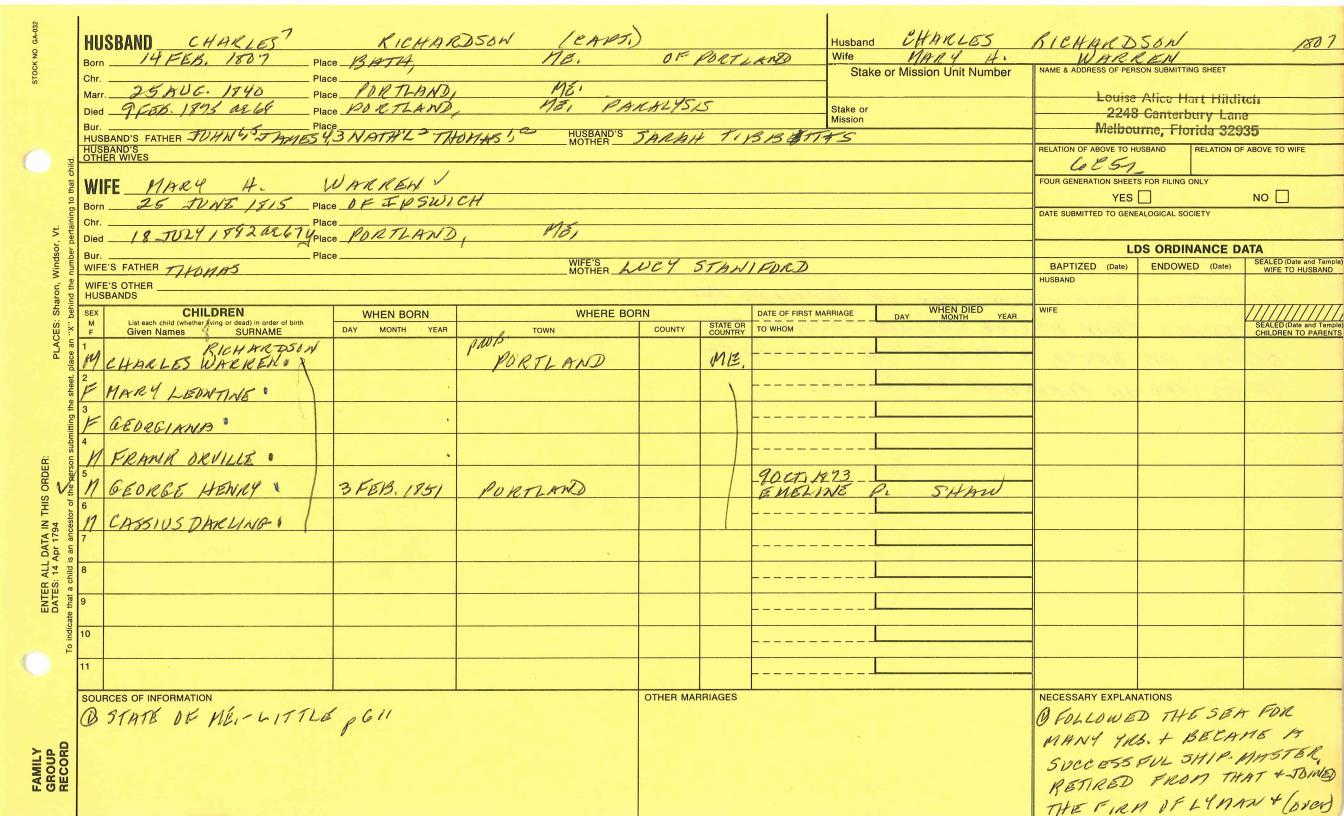 STOCK NO GA-032
HUSBAND CHARLES 7 RICHARDSON (CAPT.)
Born 14 FEB. 1807 Place BATH, ME. OF PORTLAND
Chr. Place
Marr. 25 AUG. 1840 Place PORTLAND, ME.
Died 9 FEB. 1875 ae 68 Place PORTLAND, ME. PARALYSIS
Bur. Place
HUSBAND'S FATHER JOHN JAMES NATH'L THOMAS HUSBAND'S MOTHER SARAH TIBBETTS
HUSBAND'S OTHER WIVES
WIFE MARY H. WARREN ✓
Born 25 JUNE 1815 Place OF IPSWICH
Chr. Place
Died 18 JULY 1892 ae 67y Place PORTLAND, ME.
Bur. Place
WIFE'S FATHER THOMAS WIFE'S MOTHER LUCY STANIFORD
WIFE'S OTHER HUSBANDS
Husband CHARLES RICHARDSON 1807
Wife MARY H. WARREN
Stake or Mission Unit Number
Stake or Mission
NAME & ADDRESS OF PERSON SUBMITTING SHEET
Louise Alice Hart Hilditch
2248 Canterbury Lane
Melbourne, Florida 32935
RELATION OF ABOVE TO HUSBAND RELATION OF ABOVE TO WIFE
FOUR GENERATION SHEETS FOR FILING ONLY
YES NO
DATE SUBMITTED TO GENEALOGICAL SOCIETY
LDS ORDINANCE DATA
BAPTIZED (Date) ENDOWED (Date) SEALED (Date and Temple) WIFE TO HUSBAND
HUSBAND
WIFE
SEALED (Date and Temple) CHILDREN TO PARENTS
SEX M F
CHILDREN
List each child (whether living or dead) in order of birth
Given Names SURNAME
WHEN BORN
DAY MONTH YEAR
WHERE BORN
TOWN COUNTY STATE OR COUNTRY
DATE OF FIRST MARRIAGE
TO WHOM
WHEN DIED
DAY MONTH YEAR
RICHARDSON prob.
1 M CHARLES WARREN PORTLAND ME.
2 F MARY LEONTINE
3 F GEORGIANA
4 M FRANK ORVILLE
5 M GEORGE HENRY 3 FEB. 1851 PORTLAND 9 OCT. 1873
EMELINE P. SHAW
6 M CASSIUS DARLING
7
8
9
10
11
SOURCES OF INFORMATION
① STATE OF ME. - LITTLE p 611
OTHER MARRIAGES
NECESSARY EXPLANATIONS
① FOLLOWED THE SEA FOR
MANY YRS. + BECAME A
SUCCESSFUL SHIP-MASTER,
RETIRED FROM THAT + JOINED
THE FIRM OF LYMAN + (OVER)
PLACES: Sharon, Windsor, Vt.
ENTER ALL DATA IN THIS ORDER:
DATES: 14 Apr 1794
To indicate that a child is an ancestor of the person submitting the sheet, place an "X" behind the number pertaining to that child.
FAMILY
GROUP
RECORD